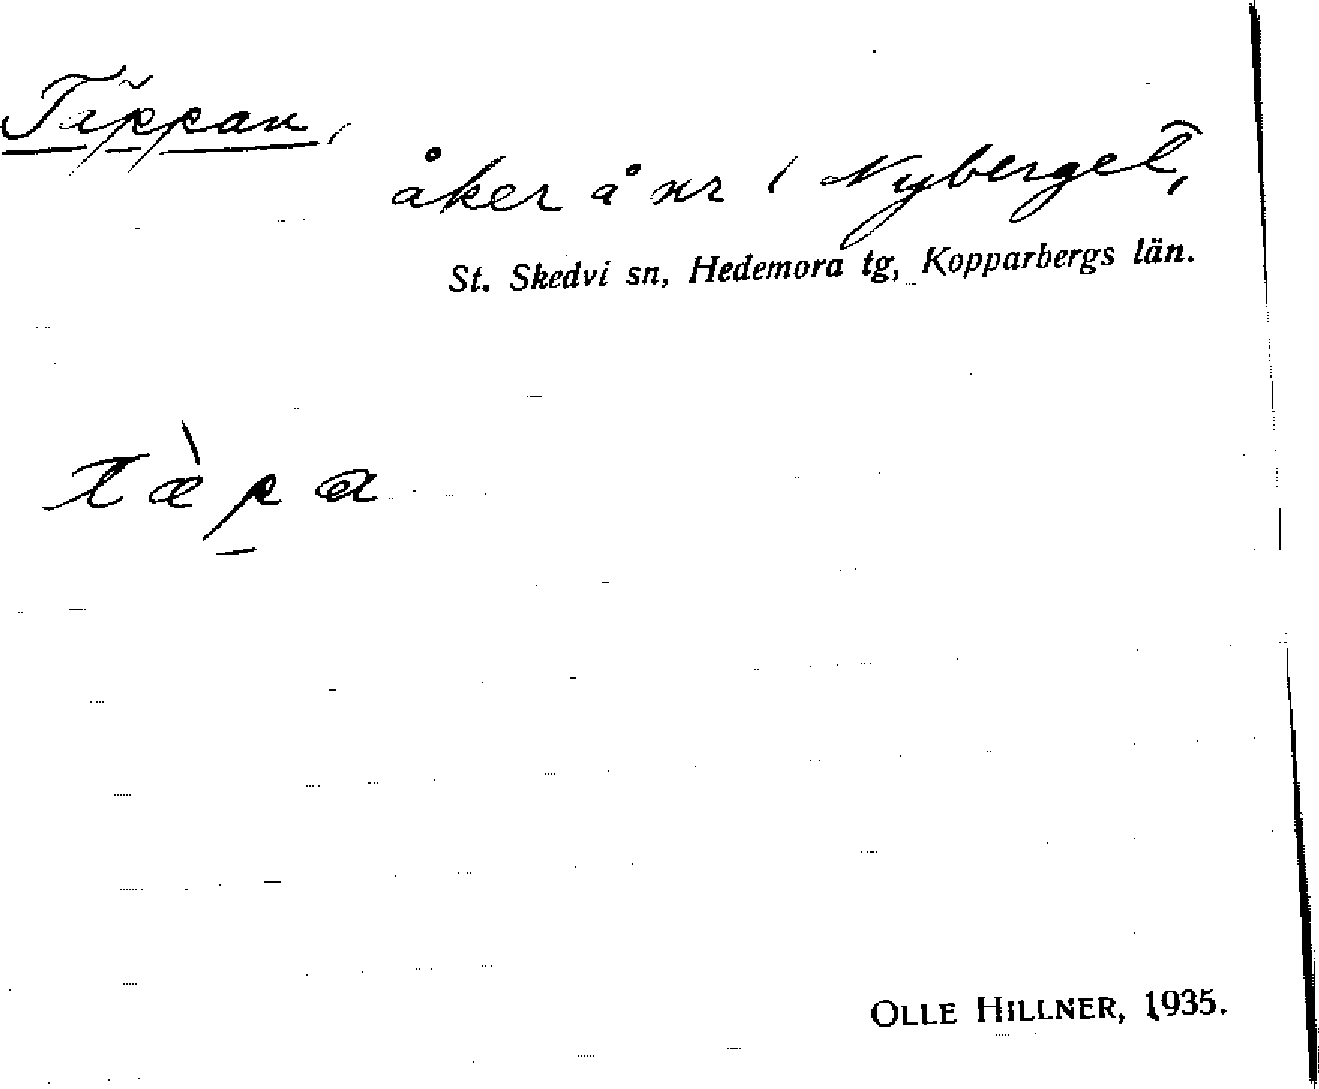 Täppan,
åker å nr 1 Nyberget,
St. Skedvi sn, Hedemora tg, Kopparbergs län.
tæ̀p̱a
OLLE HILLNER, 1935.